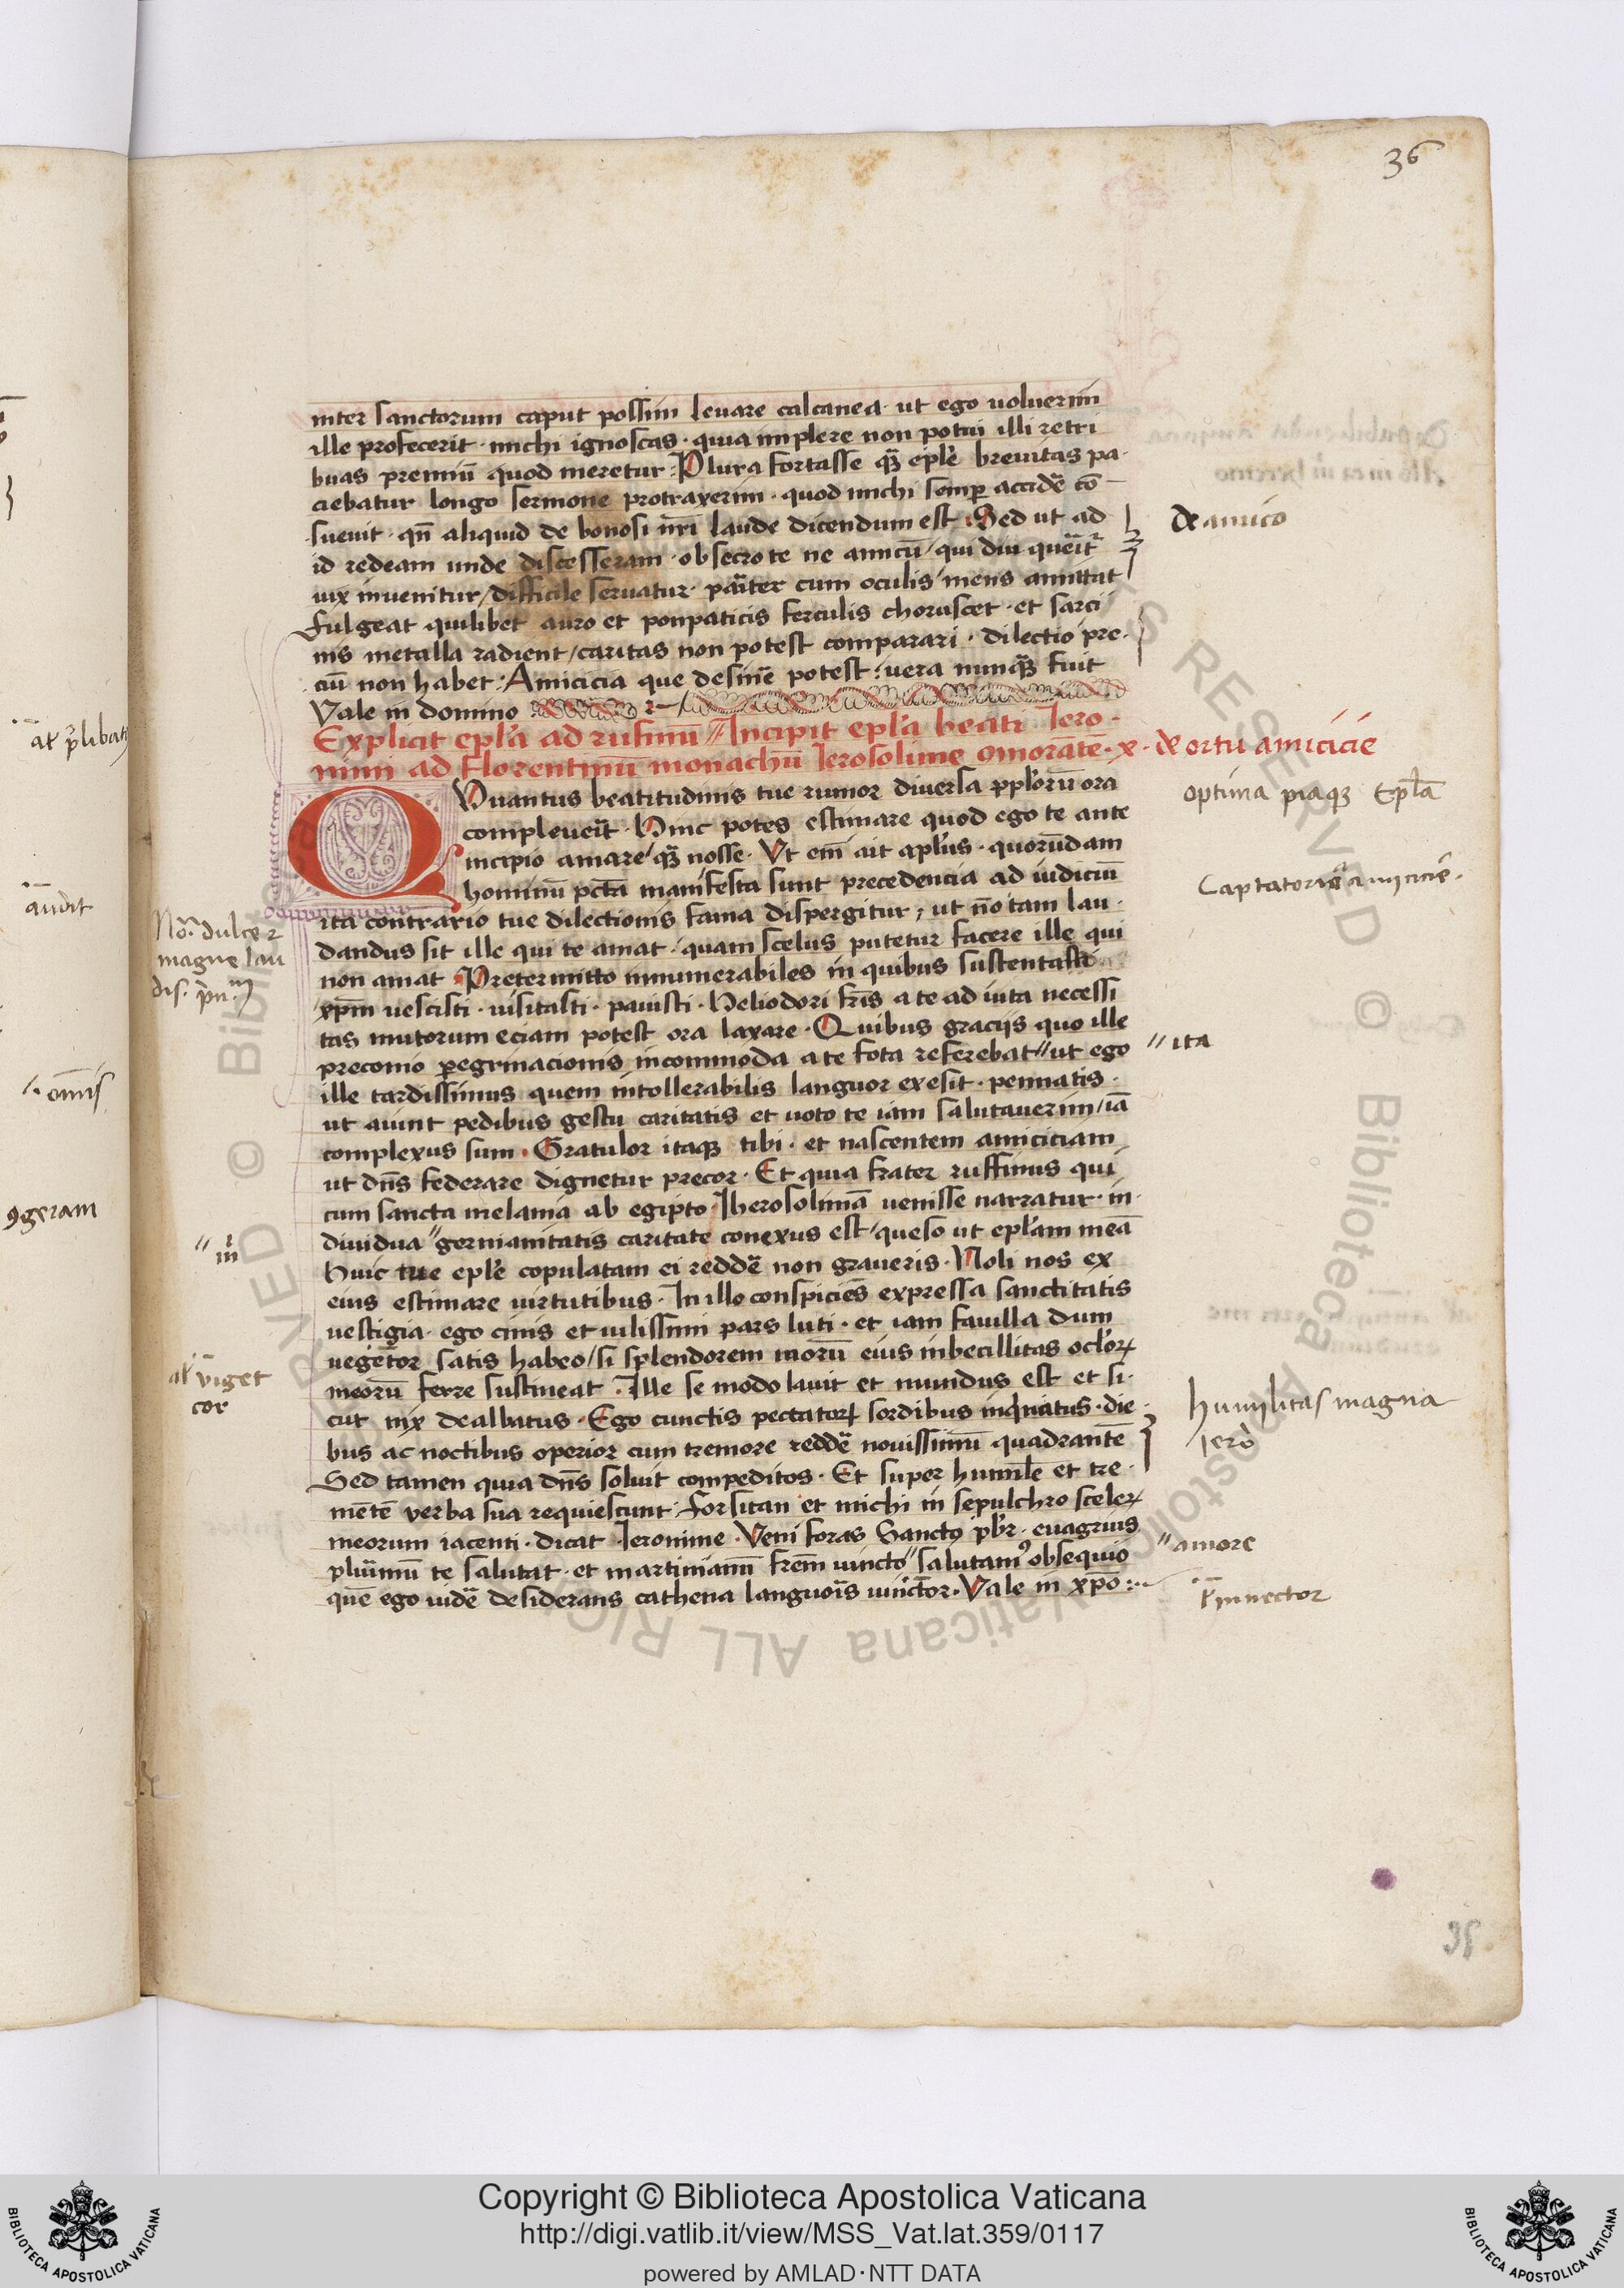 36
inter sanctorum caput possim levare calcanea · ut ego voluerim
ille profecerit · michi ignoscas · quia implere non potui illi retri
buas premiū quod meretur : Plura fortasse q̃ȝ ep̄le brevitas pa·
ciebatur longo sermone protraxerim · quod michi semꝑ accidē cō
suevit · qn̄ aliquid de bonosi nr̄i laude dicendum est · Sed ut ad
id redeam unde discesseram · obsecro te ne amicū / qui diu querit̄
vix invenitur / difficile servatur · pariter cum oculis / mens amittat
Fulgeat quilibet auro et ponpaticis ferculis choruscet · et sarcī
nis metalla radient / caritas non potest comparari · dilectio pre·
ciū non habet : Amicicia que desinē potest : vera nunq̃ȝ fuit
Vale in domino
Explicit ep̄la ad rufinū // Incipit ep̄la beati Iero·
nimi ad florentinū monachū Ierosolime ꝯmorātē · x · de ortu amicicie
de amico
optima piaqȝ Ep̄la
Captatorie amicicie ·
QVuantus beatitudinis tue rumor diversa pp̄lorū ora
complevēit · Hinc potes estimare quod ego te ante
incipio amare / q̃ȝ nosse · Vt em̄ ait ap̄lus · quorūdam
hominū pctā manifesta sunt precedencia ad iudiciū
ita contrario tue dilectionis fama dispergitur , ut nō tam lau·
dandus sit ille qui te amat / quam scelus putetur facere ille qui
non amat · Pretermitto innumerabiles in quibus sustentasti
xp̄m vescisti · visitasti · pavisti · Heliodori fr̄is a te ad iuta necessi
tas mutorum eciam potest ora laxare · Quibus gracijs quo ille
preconio ꝑegrinacionis incommoda a te fota referebat // ut ego
ille tardissimus quem intollerabilis languor exesit · pennatis ·
ut aiunt pedibus gestu caritatis et voto te iam salutaverim / iā
complexus sum · Gratulor itaqȝ tibi · et nascentem amiciciam
ut dn̄s federare dignetur precor · Et quia frater ruffinus qui
cum sancta melania ab egipto Iherosolimā venisse narratur · in·
dividua // germanitatis caritate conexus est / queso ut ep̄lam meā
huic tue ep̄le copulatam ei reddē non graveris · Noli nos ex
eius estimare virtutibus · In illo conspicies expressa sanctitatis
vestigia · ego cinis et vilissimi pars luti · et iam favilla dum
vegetor satis habeo / si splendorem morū eius inbecillitas oclōꝝ
meorū ferre sustineat · Ille se modo lavit et mundus est et si·
cut nix dealbatus · Ego cunctis peccatoꝝ sordibus inq̇natus · die·
bus ac noctibus operior cum tremore reddē novissimū quadrantē
Sed tamen quia dn̄s solvit compeditos · Et super humilē et tre·
mētē verba sua requiescunt · forsitan et michi in sepulchro sceleꝝ
meorum iacenti · dicat · Ieronime · Veni foras Sancto pb̄r · evagrius
plurimū te salutat · et martinianū frēm vincto // salutamꝰ obsequio
quē ego vidē desiderans cathena languoris vinctor · Vale in xp̄o :
No. dulce
magne lau
dis
// ita
// in
al̄ viget
cor
humilitas magna
Iero
// amore
innector
omnis
ꝯgeram
36
RESERVED © Biblioteca Apostolica Vaticana ALL
Copyright © Biblioteca Apostolica Vaticana
http://digi.vatlib.it/view/MSS_Vat.lat.359/0117
powered by AMLAD·NTT DATA
BIBLIOTECA APOSTOLICA VATICANA
BIBLIOTECA APOSTOLICA VATICANA